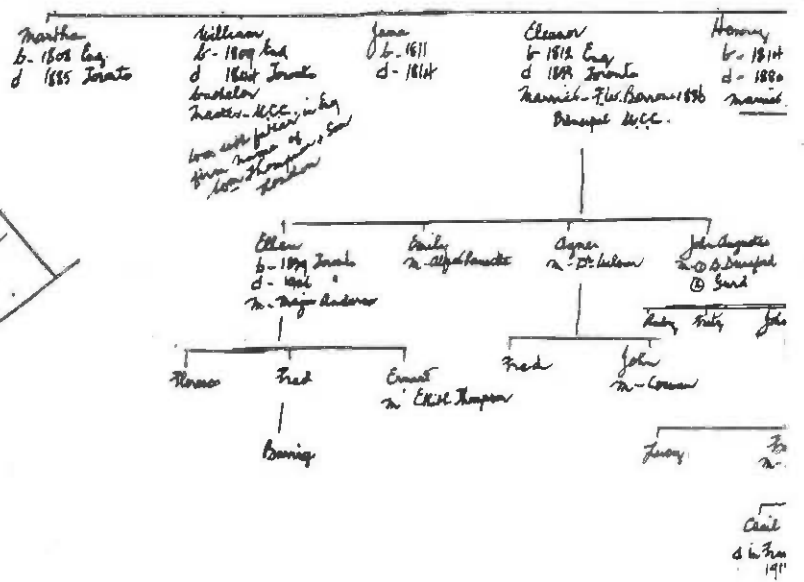 Martha
b - 1808 Eng
d 1885 Toronto
William
b - 1809 Eng
d Toronto
bachelor
Master - U.C.C.
father in Eng
firm name of
Wm Thompson & Son
London
Jane
b - 1811
d - 1814
Eleanor
b 1812 Eng
d Toronto
Married - F.W. Barron 1836
Principal U.C.C.
Henry
b - 1814
d - 1880
Married
Ellen
b - Toronto
d -
m - Major Anderson
Emily
m - Alfred
Agnes
m - Dr Wilson
John Augustus
m - ① D Dunsford
②
Ruby Fritz John
Florence Fred Ernest
m Edith Thompson
Fred John
m - Cowan
Leroy
m -
Cecil
d in Fran
191